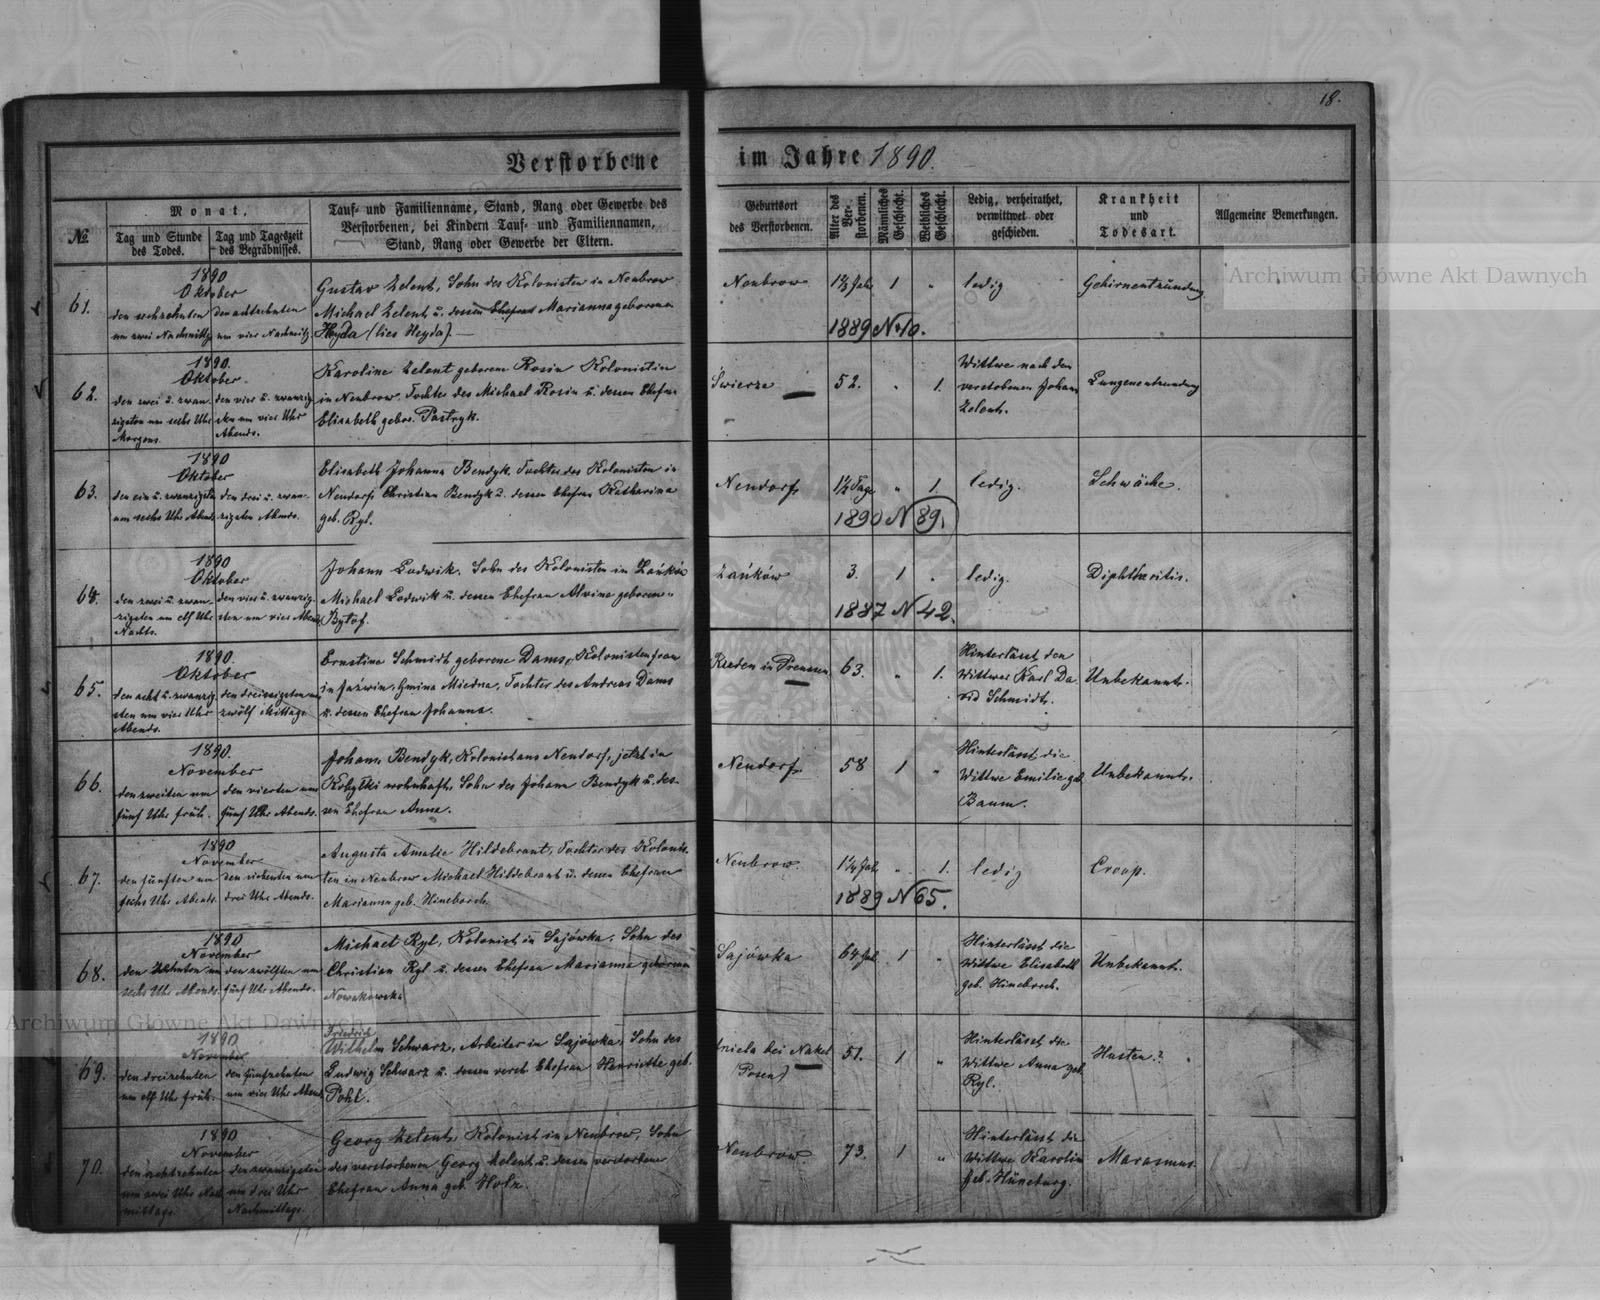 18.
Verstorbene im Jahre 1890.
№
Monat,
Tag und Stunde des Todes.
Tag und Tageszeit des Begräbnisses.
Tauf- und Familienname, Stand, Rang oder Gewerbe des
Verstorbenen, bei Kindern Tauf- und Familiennamen,
Stand, Rang oder Gewerbe der Eltern.
Geburtsort
des Verstorbenen.
Alter des Verstorbenen.
Männliches Geschlecht.
Weibliches Geschlecht.
Ledig, verheirathet,
verwittwet oder
geschieden.
Krankheit
und
Todesart.
Allgemeine Bemerkungen.
61.
1890
Oktober
den sechzehnten
um zwei Nachmittg
den achtzehnten
um vier Nachmitg
Gustav Zelent, Sohn des Kolonisten in Neubrow
Michael Zelent u. dessen Ehefrau Marianna geborenen
Heyda (lies Heyda).
Neubrow
1
ledig
Gehirnentzündung
1889 N 40.
62.
1890.
Oktober
den zwei u. zwan
zigsten um sechs Uhr
Morgens.
den vier u. zwanzig
sten um vier Uhr
Abends.
Karoline Zelent geborene Rosin Kolonistin
in Neubrow Tochter des Michael Rosin u. dessen Ehefrau
Elisabeth gebor. Pastryk.
Swierze
52.
1.
Wittwe nach dem
verstobenen Johann
Zelent.
Lungenentzundung
63.
1890
Oktober
den ein u. zwanzigsten
um sechs Uhr Abends
den drei u. zwan-
zigsten Abends.
Elisabeth Johanna Bendyk. Tochter des Kolonisten in
Neudorf Christian Bendyk u. dessen Ehefrau Katharina
geb. Ryl.
Neudorf
1½ Tage
1.
ledig.
Schwäche.
1890 N 89.
64.
1890
Oktober
den zwei u. zwan
zigsten um elf Uhr
Nachts.
den vier u. zwanzig-
sten um vier Abends
Johann Ludwik. Sohn des Kolonisten in Zańków
Michael Ludwik u. dessen Ehefrau Alvina geborene
Bytof.
Zańków
3.
1
ledig.
Diphtheritis.
1887 N 42.
65.
1890.
Oktober
den acht u. zwanzig
sten um vier Uhr
Abends.
den dreissigsten um
zwölf Mittags
Ernstine Schmidt geborene Dams, Kolonistenfrau
in Jaźwin, Gmina Miedna, Tochter des Andreas Dams
u. dessen Ehefrau Johanna.
Rheden in Preussen
63.
1.
Hinterlässt den
Wittwer Karl Da
vid Schmidt.
Unbekannt.
66.
1890.
November
den zweiten um
fünf Uhr früh.
den vierten um
fünf Uhr Abends.
Johann Bendyk, Kolonist aus Neudorf, jetzt in
Kobyłki wohnhaft, Sohn des Johann Bendyk u. des-
sen Ehefrau Anna.
Neudorf
58
1
Hinterlässt die
Wittwe Emilie geb.
Baum.
Unbekannt.
67.
1890
November
den fünften um
sechs Uhr Abends.
den siebenten um
drei Uhr Abends.
Augusta Amalie Hildebrant, Tochter des Kolonis-
ten in Neubrow Michael Hildebrant u. dessen Ehefrau
Marianna geb. Hineborch.
Neubrow
1.
ledig
Croop.
1889 N 65.
68.
1890
November
den Zehnten um
sechs Uhr Abends.
den zwölften um
fünf Uhr Abends.
Michael Ryl, Kolonist in Sajówka, Sohn des
Christian Ryl u. dessen Ehefrau Marianna geborene
Nowakowska
Sajówka
1
Hinterlässt die
Wittwe Elisabeth
geb. Hineborch.
Unbekannt.
69.
1890
November
den dreizehnten
um elf Uhr früh.
den fünfzehnten
um vier Uhr Abends
Friedrich
Wilhelm Schwarz, Arbeiter in Sajówka, Sohn des
Ludwig Schwarz u. dessen verst. Ehefrau Henriette geb.
Pohl.
bei Nakel
(Posen)
51.
1
Hinterlässt die
Wittwe Anna geb.
Ryl.
Husten?
70.
1890
November
den achtzehnten
um zwei Uhr Nach
mittags.
den zwanzigsten
um drei Uhr
Nachmittags.
Georg Zelent, Kolonist in Neubrow, Sohn
des verstorbenen Georg Zelent u. dessen verstorbene
Ehefrau Anna geb. Holz.
Neubrow
73.
1
Hinterlässt die
Wittwe Karolin
geb. Hüneburg.
Marasmus.
Archiwum Główne Akt Dawnych
Archiwum Główne Akt Dawnych